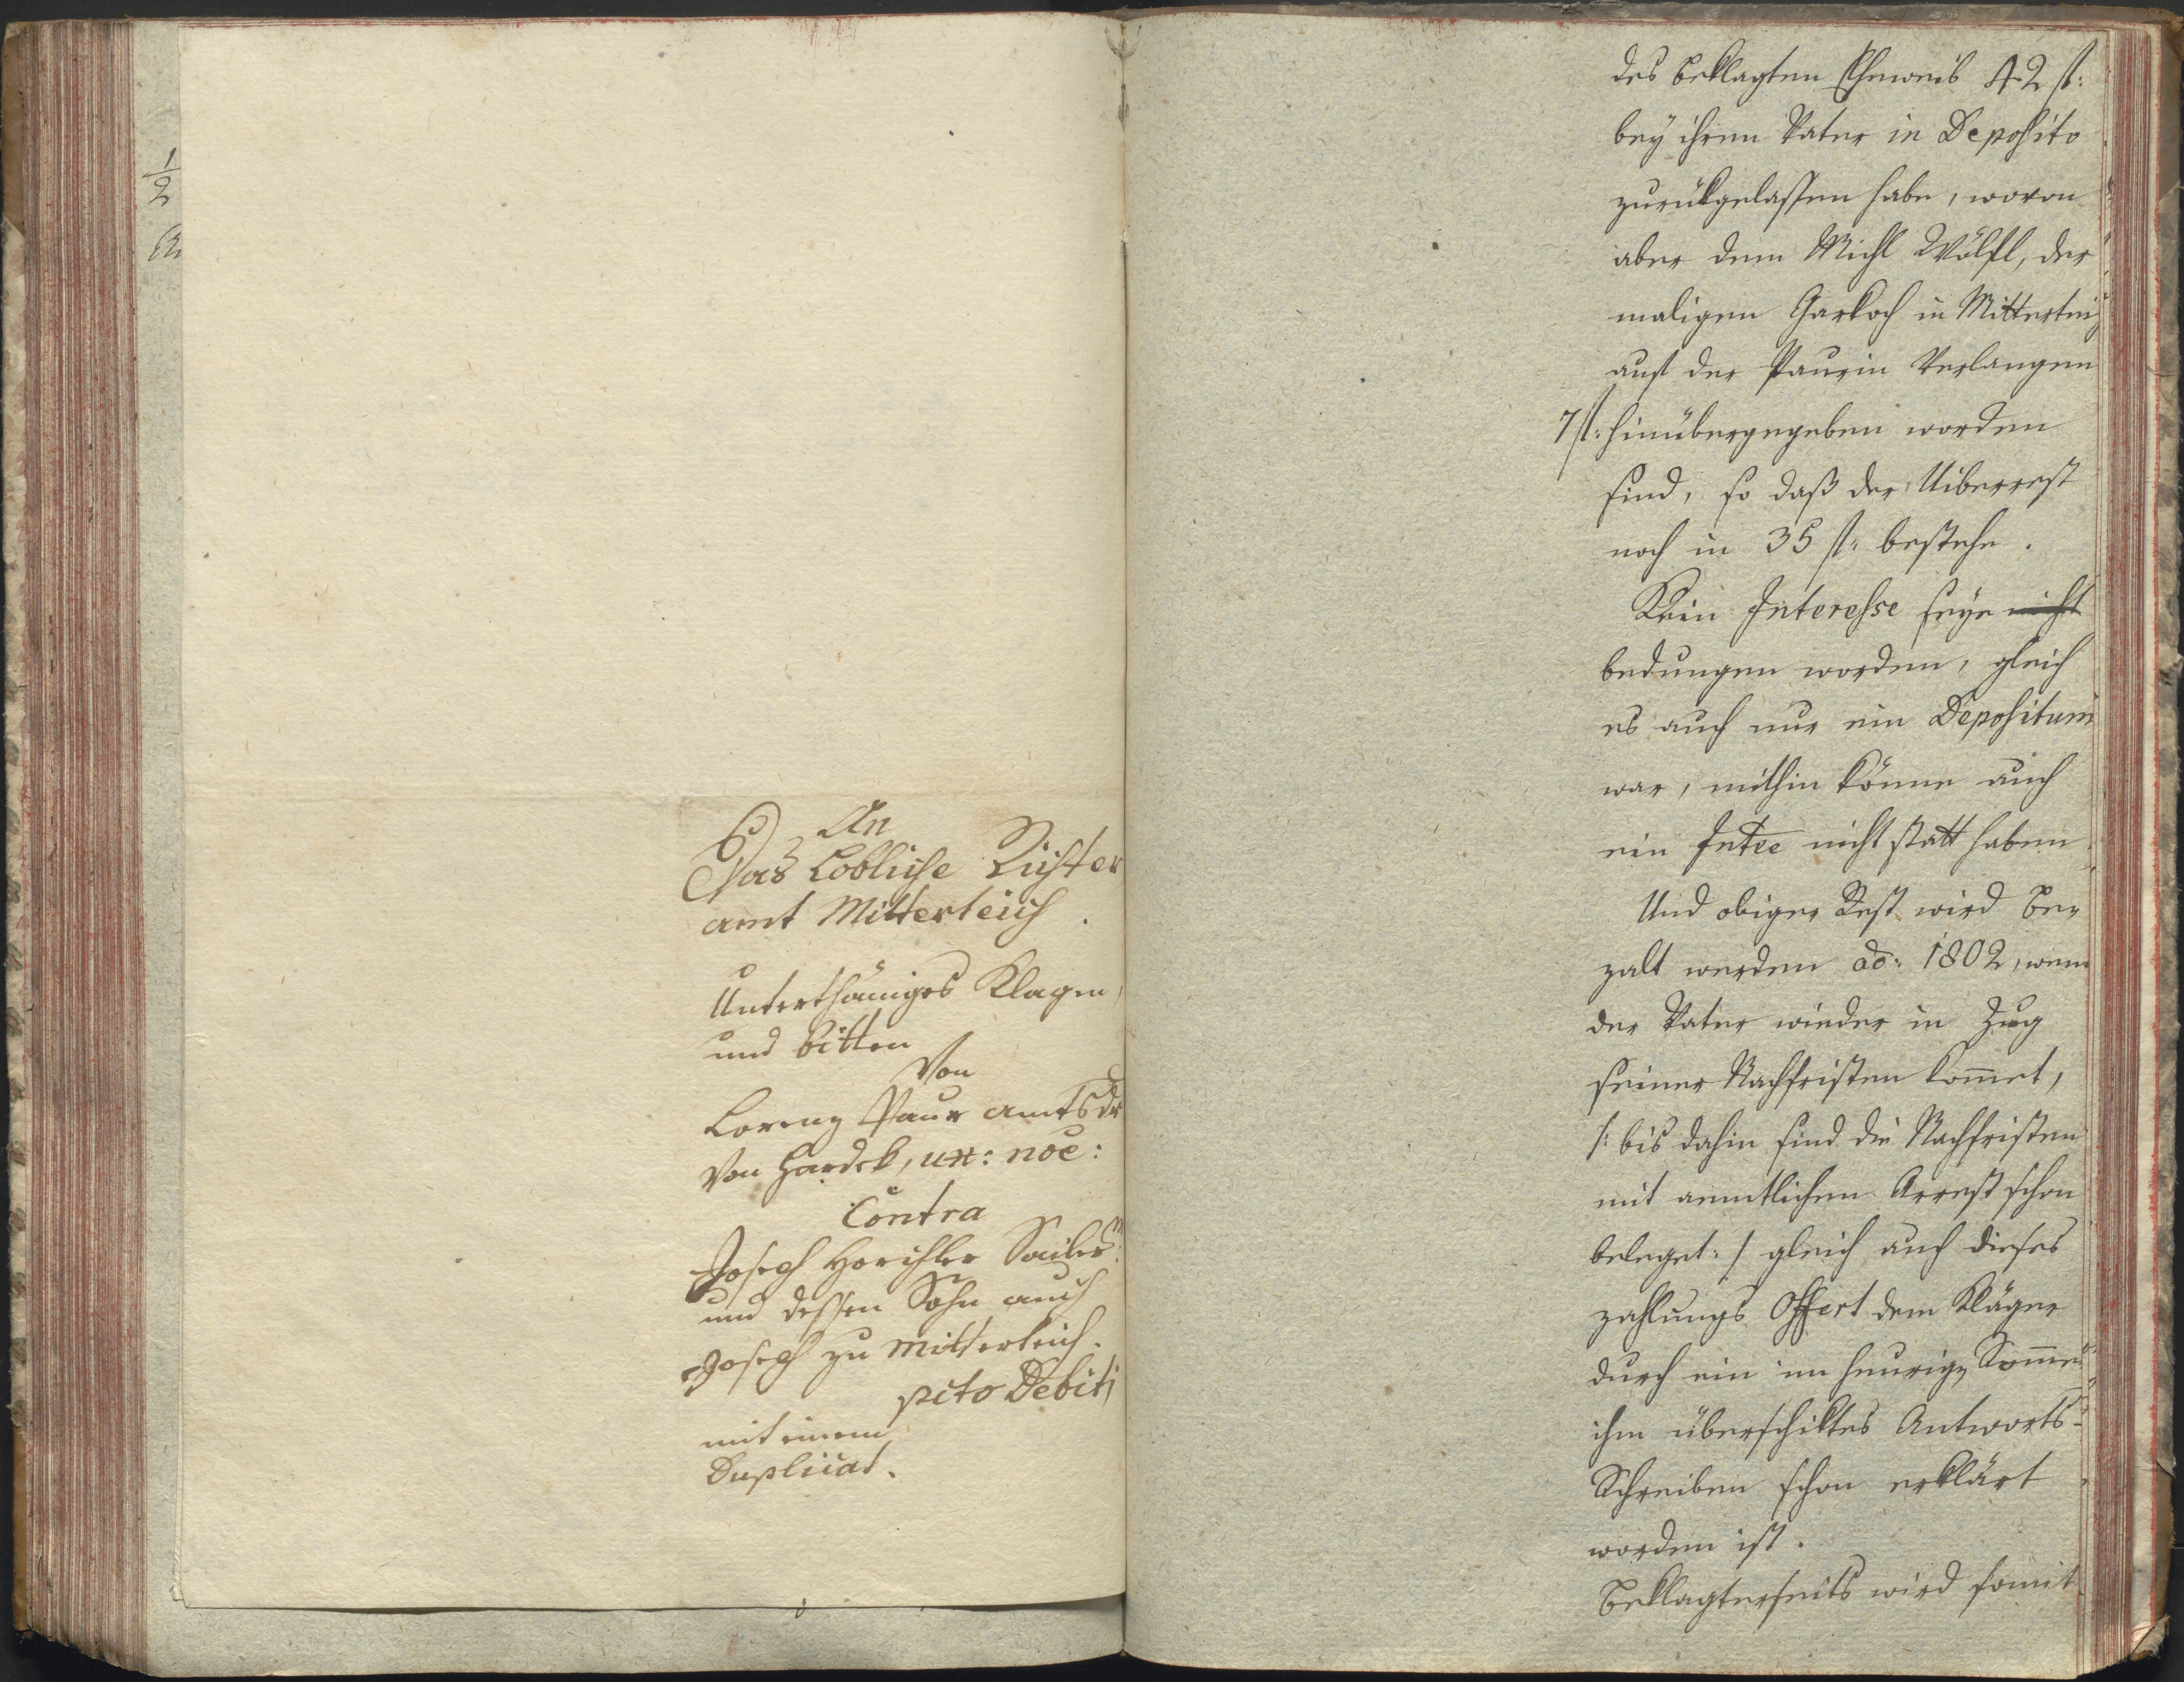 1/2
An
Das Löbliche Richter
amt Mitterteich.
Unterthäniges Klagen,
und bitten
Von
Lorenz Paur amts dr
von Hardek, ux: noe:
Contra
Joseph Horchler Sailer
und dessen Sohn auch
Joseph zu Mitterteich.
pcto Debiti
mit einem
Duplicat.
des beklagten Eheweib 42 fl:
bey ihrem Vater in Deposito
zurükgelassen habe, wovon
aber dem Michl Wölfl, der
maligen Garkoch in Mitterteich
auf der Paurin Verlangen
7 fl: hinübergegeben worden
sind, so daß der Uiberrest
noch in 35 fl: bestehe.
Kein Interesse seye nicht
bedungen worden, gleich
es auch nur ein Depositum
war, mithin könne auch
ein Intee nicht statt haben.
Und obiger Rest wird be„
zalt werden ao: 1802, wenn
der Vater wieder in Zug
seiner Nachfristen kommet,
/: bis dahin sind die Nachfristen
mit aemtlichen Arrest schon
beleget: / gleich auch dieses
zahlungs Offert dem Kläger
durch ein im heurigen Sommer
ihm überschiktes Antworts-
Schreiben schon erklärt
worden ist.
Beklagterseits wird somit